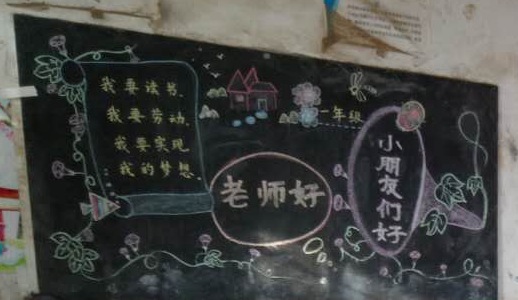 我要读书、
我要劳动、
我要实现
我的梦想、
一年级
老师好
小朋友们好